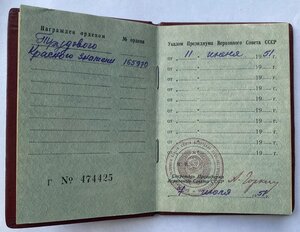 Награжден орденом
№ ордена
Трудового
Красного знамени 165970
Г № 474425
Указом Президиума Верховного Совета СССР
от 11 июня 1951.
от 19
от 19
от 19
от 19
от 19
от 19
Секретарь Президиума
Верховного Совета СССР
А. Горкин
июля 51.